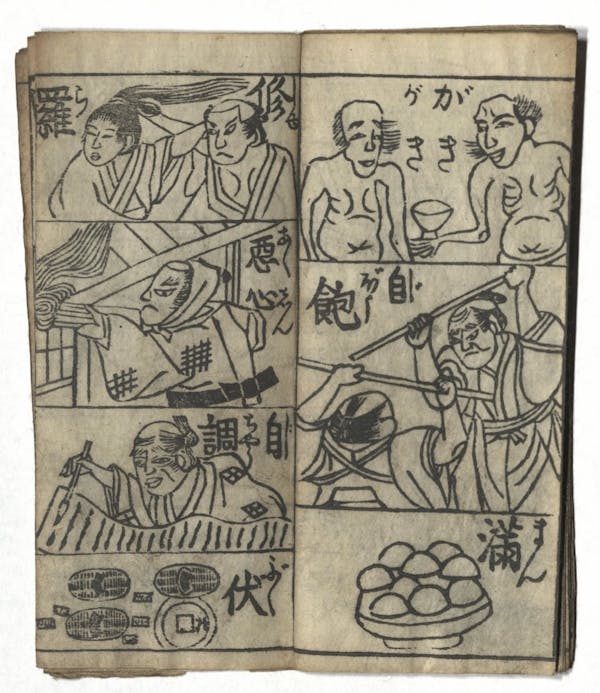 がき
がき
自 じ
飽 ぼう
満 まん
修 しゆ
羅 ら
悪心 あくしん
自 じ
調 ぢやう
伏 ぶく